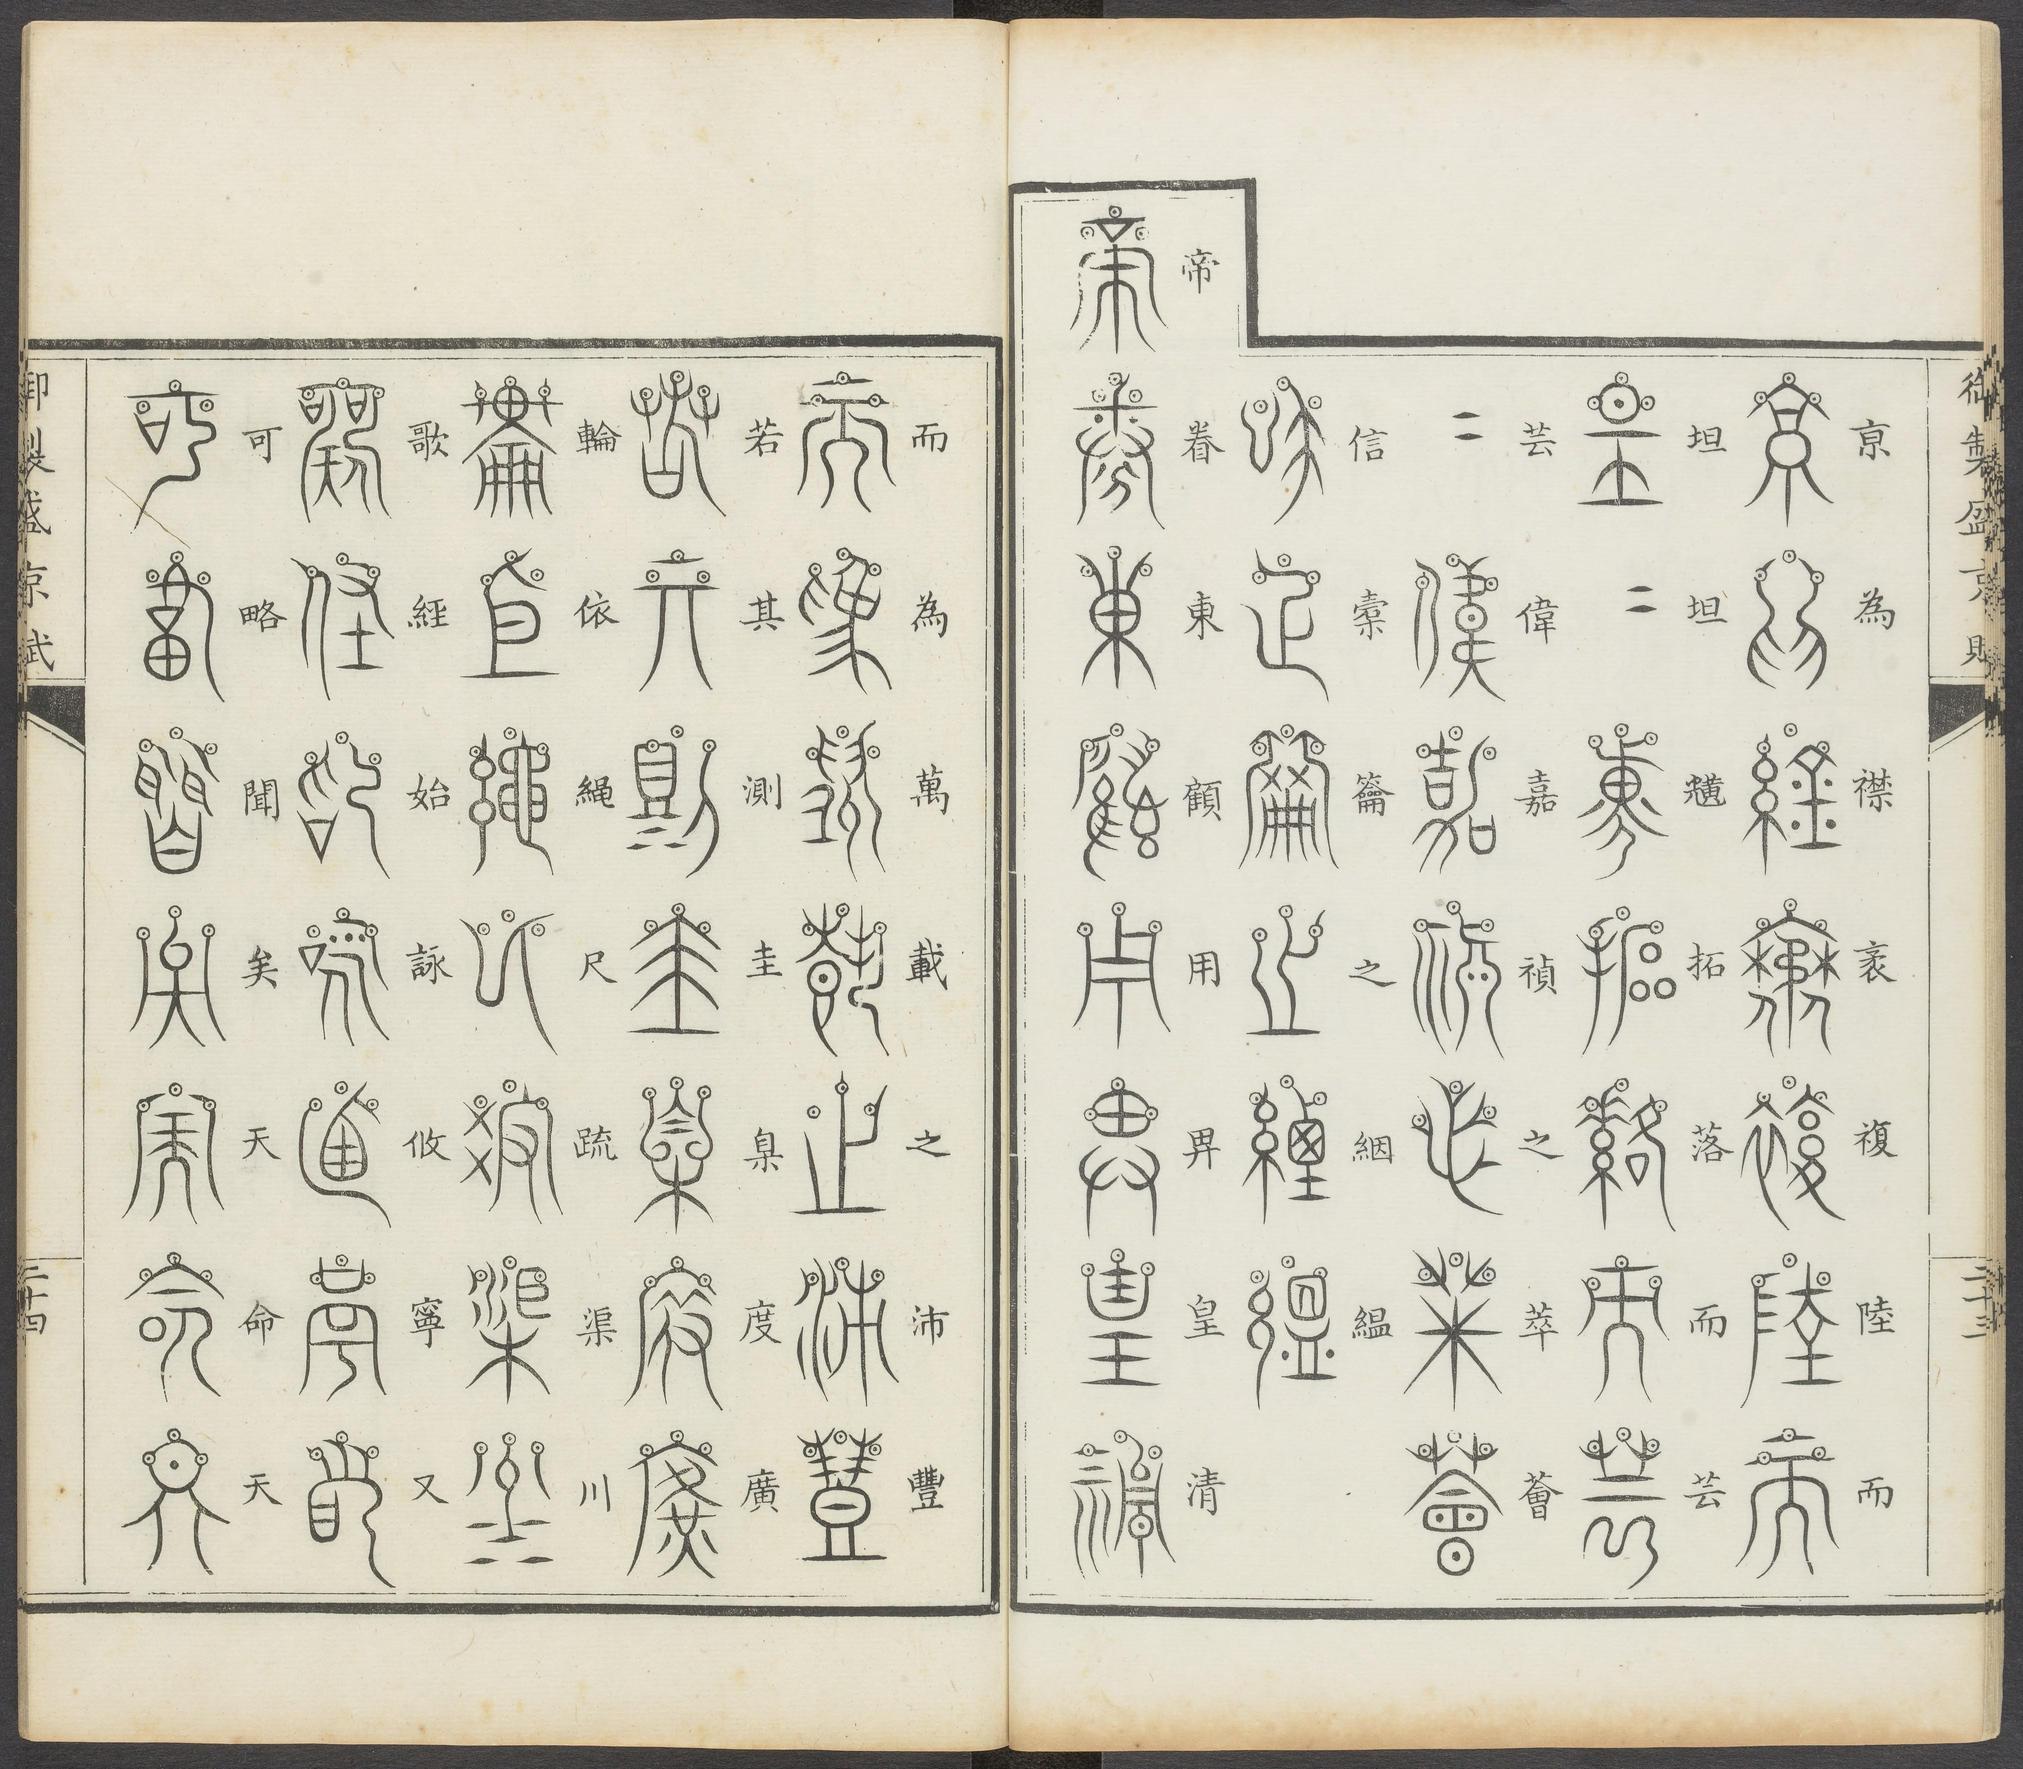 御製盛京賦
二十三
京為襟袤複陸而
坦〻韆拓落而芸
芸偉嘉禎之萃薈
信橐籥之絪緼
帝眷東顧用畀皇清
而為萬載之沛豐
若其測圭臬度廣
輪依繩尺疏渠川
歌經始詠攸寧又
可略聞矣天命天
御製盛京賦
二十四